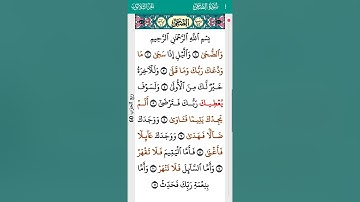 سُورَةُ الضُّحَىٰ
الجُزْءُ الثَّلَاثُونَ
بِسْمِ ٱللَّهِ ٱلرَّحْمَٰنِ ٱلرَّحِيمِ
وَٱلضُّحَىٰ ۝ وَٱلَّيْلِ إِذَا سَجَىٰ ۝ مَا
وَدَّعَكَ رَبُّكَ وَمَا قَلَىٰ ۝ وَلَلْءَاخِرَةُ
خَيْرٌ لَّكَ مِنَ ٱلْأُولَىٰ ۝ وَلَسَوْفَ
يُعْطِيكَ رَبُّكَ فَتَرْضَىٰ ۝ أَلَمْ
يَجِدْكَ يَتِيمًا فَـَٔاوَىٰ ۝ وَوَجَدَكَ
ضَآلًّا فَهَدَىٰ ۝ وَوَجَدَكَ عَآئِلًا
فَأَغْنَىٰ ۝ فَأَمَّا ٱلْيَتِيمَ فَلَا تَقْهَرْ
۝ وَأَمَّا ٱلسَّآئِلَ فَلَا تَنْهَرْ ۝ وَأَمَّا
بِنِعْمَةِ رَبِّكَ فَحَدِّثْ ۝